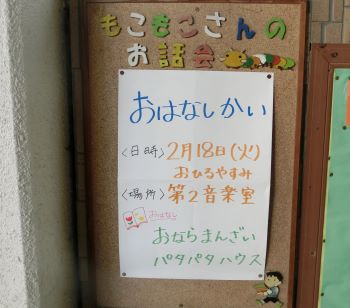 もこもこさんの
お話会
おはなしかい
〈日時〉2月18日(火)
おひるやすみ
〈場所〉第2音楽室
おはなし
おならまんざい
パタパタハウス